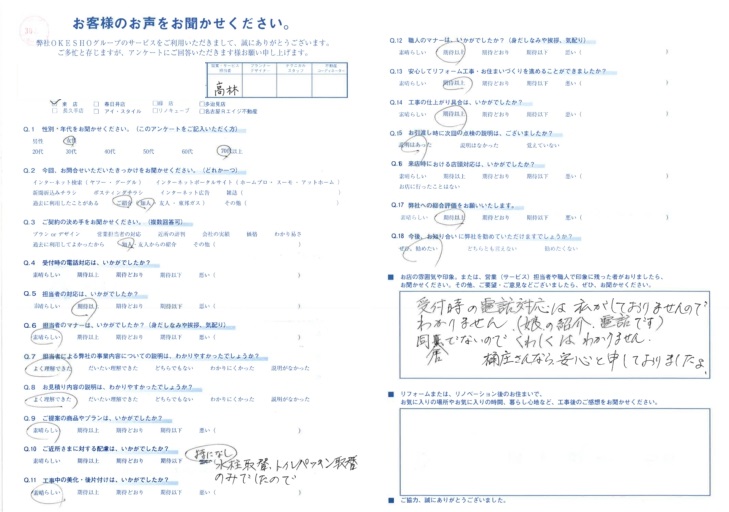 お客様のお声をお聞かせください。
弊社OKESHOグループのサービスをご利用いただきまして、誠にありがとうございます。
ご多忙と存じますが、アンケートにご回答いただきます様お願い申し上げます。
高林
東店 春日井店 多治見店
長久手店 アイ・スタイル リノキューブ 名古屋エイジ不動産
Q.1 性別・年代をお聞かせください。(このアンケートをご記入いただく方)
男性 女性
20代 30代 40代 50代 60代 70代以上
Q.2 今回、お問合せいただいたきっかけをお聞かせください。(どれか一つ)
インターネット検索(ヤフー・グーグル) インターネットポータルサイト(ホームプロ・スーモ・アットホーム)
新聞折込みチラシ ポスティングチラシ インターネット広告 雑誌( )
過去に利用したことがある ご紹介(知人・友人・東邦ガス) その他( )
Q.3 ご契約の決め手をお聞かせください。(複数回答可)
プラン or デザイン 営業担当者の対応 近所の評判 会社の実績 価格 わかり易さ
過去に利用してよかったから 知人・友人からの紹介 その他( )
Q.4 受付時の電話対応は、いかがでしたか?
素晴らしい 期待以上 期待どおり 期待以下 悪い( )
Q.5 担当者の対応は、いかがでしたか?
素晴らしい 期待以上 期待どおり 期待以下 悪い( )
Q.6 担当者のマナーは、いかがでしたか?(身だしなみや挨拶、気配り)
素晴らしい 期待以上 期待どおり 期待以下 悪い( )
Q.7 担当者による弊社の事業内容についての説明は、わかりやすかったでしょうか?
よく理解できた だいたい理解できた どちらでもない わかりにくかった 説明がなかった
Q.8 お見積り内容の説明は、わかりやすかったでしょうか?
よく理解できた だいたい理解できた どちらでもない わかりにくかった 説明がなかった
Q.9 ご提案の商品やプランは、いかがでしたか?
素晴らしい 期待以上 期待どおり 期待以下 悪い( )
Q.10 ご近所さまに対する配慮は、いかがでしたか?
素晴らしい 期待以上 期待どおり 期待以下
特になし
水栓取替、トイレペーパー取替
のみでしたので
Q.11 工事中の美化・後片付けは、いかがでしたか?
素晴らしい 期待以上 期待どおり 期待以下 悪い( )
Q.12 職人のマナーは、いかがでしたか?(身だしなみや挨拶、気配り)
素晴らしい 期待以上 期待どおり 期待以下 悪い( )
Q.13 安心してリフォーム工事・お住まいづくりを進めることができましたか?
素晴らしい 期待以上 期待どおり 期待以下 悪い( )
Q.14 工事の仕上がり具合は、いかがでしたか?
素晴らしい 期待以上 期待どおり 期待以下 悪い( )
Q.15 お引渡し時に次回の点検の説明は、ございましたか?
説明はあった 説明はなかった 覚えていない
Q.16 来店時における店頭対応は、いかがでしたか?
素晴らしい 期待以上 期待どおり 期待以下 悪い( )
お店に行ったことはない
Q.17 弊社への総合評価をお願いいたします。
素晴らしい 期待以上 期待どおり 期待以下 悪い( )
Q.18 今後、お知り合いに弊社を勧めていただけますでしょうか?
ぜひ、勧めたい どちらとも言えない 勧めたくない
■ お店の雰囲気や印象、または、営業(サービス)担当者や職人で印象に残った者がおりましたら、
お聞かせください。その他、ご要望・ご意見などございましたら、ぜひ、お聞かせください。
受付時の電話対応は私がしておりませんので
わかりません。(娘の紹介、電話です)
同居でないのでくわしくはわかりません。
桶庄さんなら、安心と申しておりましたよ。
■ リフォームまたは、リノベーション後のお住まいで、
お気に入りの場所やお気に入りの時間、暮らし心地など、工事後のご感想をお聞かせください。
■ ご協力、誠にありがとうございました。